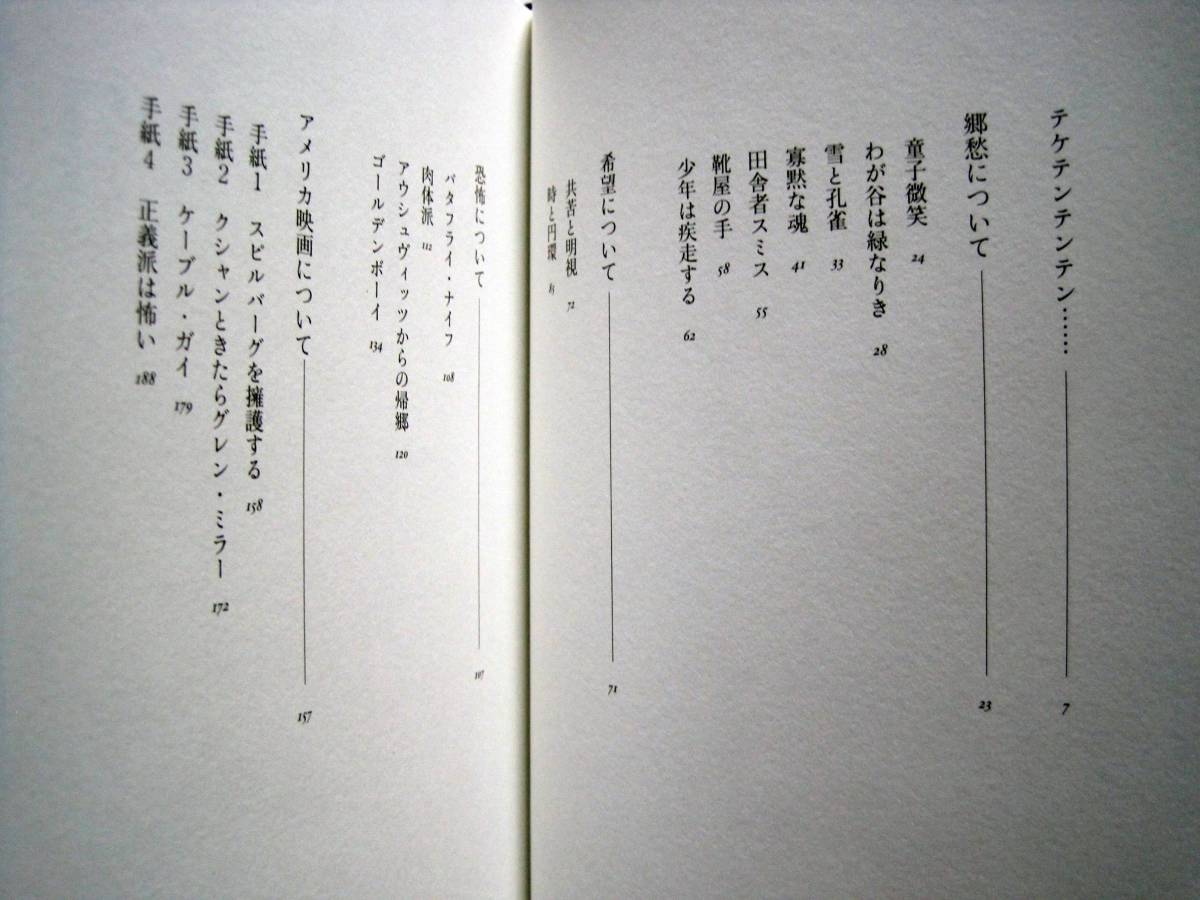 テケテンテンテン…… 7
郷愁について 23
童子微笑 24
わが谷は緑なりき 28
雪と孔雀 33
寡黙な魂 41
田舎者スミス 55
靴屋の手 58
少年は疾走する 62
希望について 71
共苦と明視 72
時と円環 85
恐怖について 107
バタフライ・ナイフ 108
肉体派 112
アウシュヴィッツからの帰郷 120
ゴールデンボーイ 134
アメリカ映画について 157
手紙1 スピルバーグを擁護する 158
手紙2 クシャンときたらグレン・ミラー 172
手紙3 ケーブル・ガイ 179
手紙4 正義派は怖い 188